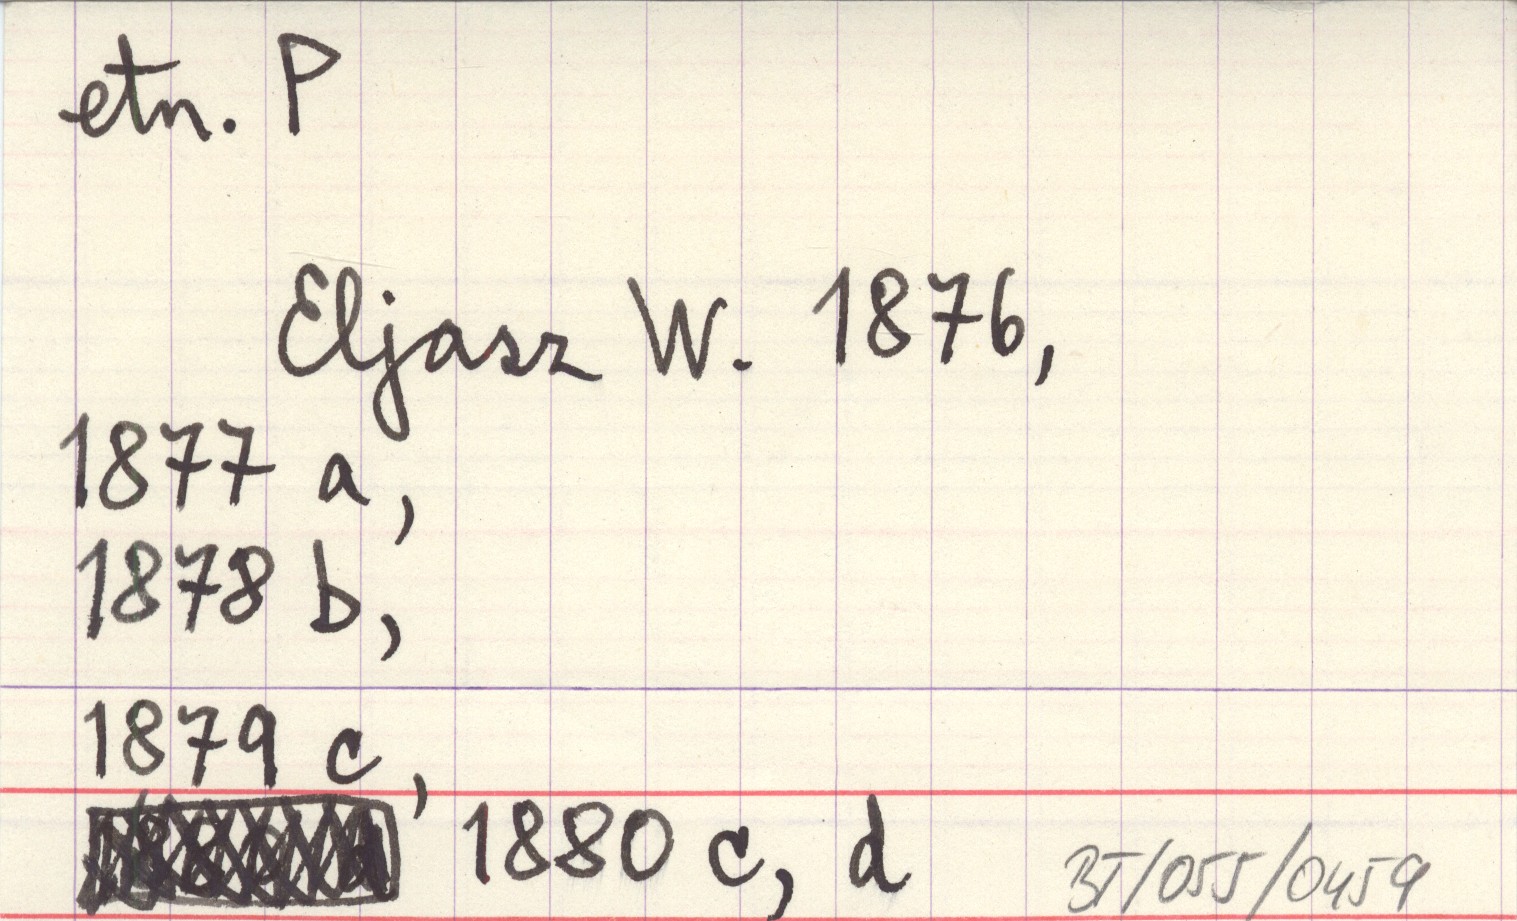 etn. P
Eljasz W. 1876,
1877 a,
1878 b,
1879 c,
1880 c, d
BT/055/0459